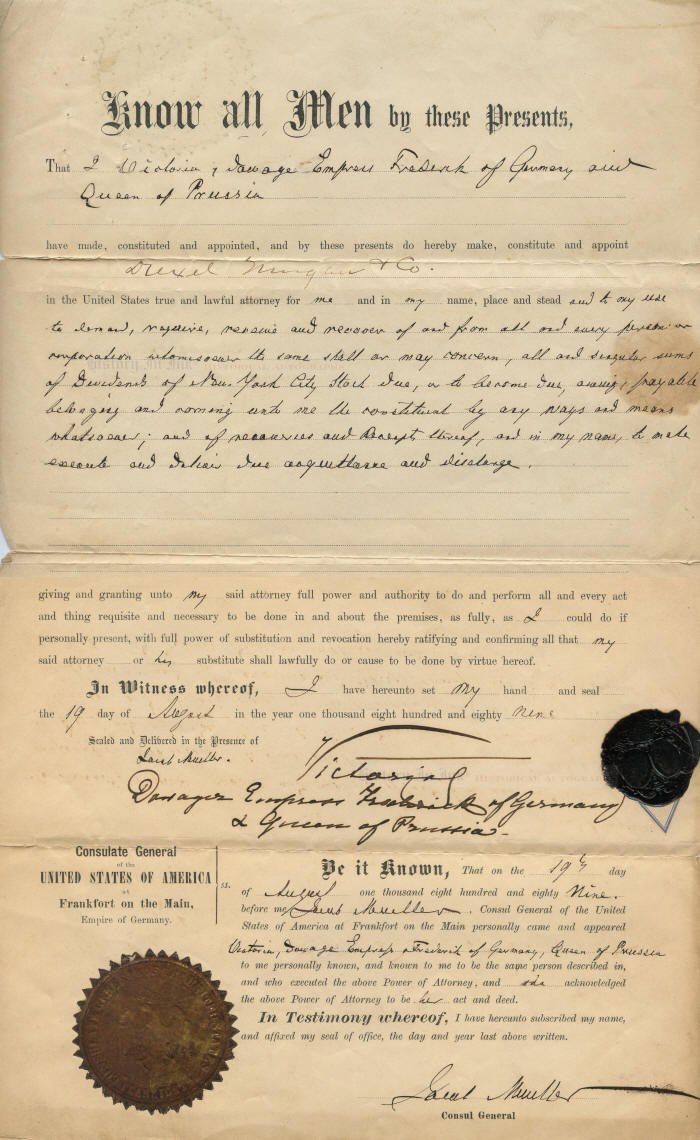 Know all Men by these Presents,
That I Victoria, Dowage Empress Frederick of Germany and
Queen of Prussia
have made, constituted and appointed, and by these presents do hereby make, constitute and appoint
Drexel Morgan & Co.
in the United States true and lawful attorney for me and in my name, place and stead and to my use
to demand, require, receive and recover of and from all and every person or
corporation whomsoever the same shall or may concern, all and singular sums
of Dividends of New-York City Stock due, or to become due, owing, payable
belonging and coming unto me the constituent by any ways and means
whatsoever; and of recoveries and Receipts thereof, and in my name, to make
execute and deliver due acquittance and discharge.
giving and granting unto my said attorney full power and authority to do and perform all and every act
and thing requisite and necessary to be done in and about the premises, as fully, as I could do if
personally present, with full power of substitution and revocation hereby ratifying and confirming all that my
said attorney or his substitute shall lawfully do or cause to be done by virtue hereof.
In Witness whereof, I have hereunto set my hand and seal
the 19 day of August in the year one thousand eight hundred and eighty nine
Sealed and Delivered in the Presence of
Jacob Mueller.
Victoria
Dowager Empress Frederick of Germany
& Queen of Prussia-
Consulate General
of the
UNITED STATES OF AMERICA
at
Frankfort on the Main,
Empire of Germany.
ss.
Be it Known, That on the 19th day
of August one thousand eight hundred and eighty Nine.
before me Jacob Mueller, Consul General of the United
States of America at Frankfort on the Main personally came and appeared
Victoria, Dowage Empress Frederick of Germany, Queen of Prussia
to me personally known, and known to me to be the same person described in,
and who executed the above Power of Attorney, and she acknowledged
the above Power of Attorney to be her act and deed.
In Testimony whereof, I have hereunto subscribed my name,
and affixed my seal of office, the day and year last above written.
Jacob Mueller
Consul General